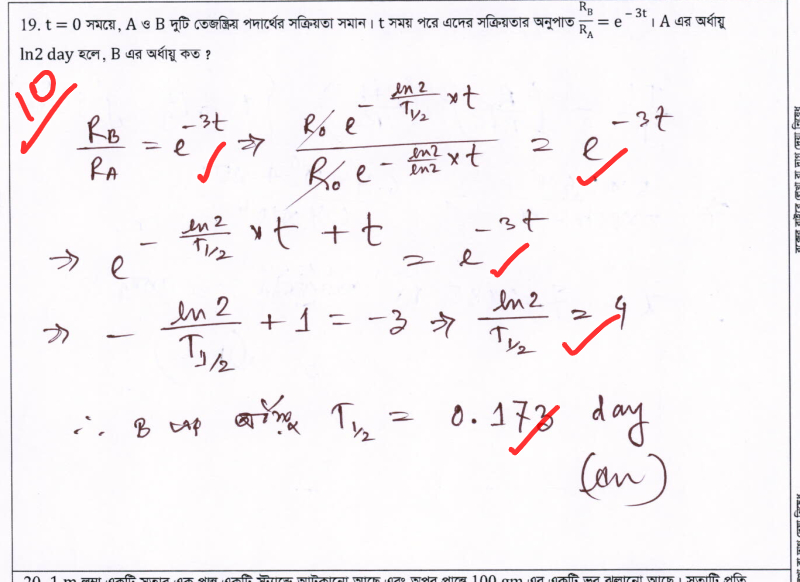 19. t = 0 সময়ে, A ও B দুটি তেজস্ক্রিয় পদার্থের সক্রিয়তা সমান। t সময় পরে এদের সক্রিয়তার অনুপাত R_B/R_A = e^{-3t}। A এর অর্ধায়ু
ln2 day হলে, B এর অর্ধায়ু কত ?
10
R_B/R_A = e^{-3t} ⇒ R_0 e^{-ln2/T_{1/2} × t} / R_0 e^{-ln2/ln2 × t} = e^{-3t}
⇒ e^{-ln2/T_{1/2} × t + t} = e^{-3t}
⇒ - ln2/T_{1/2} + 1 = -3 ⇒ ln2/T_{1/2} = 4
∴ B এর অর্ধায়ু T_{1/2} = 0.173 day
(Ans)
20. 1 m লম্বা একটি সুতার এক প্রান্ত একটি স্ট্যান্ডে আটকানো আছে এবং অপর প্রান্তে 100 gm এর একটি ভর ঝুলানো আছে। সুতাটি প্রতি